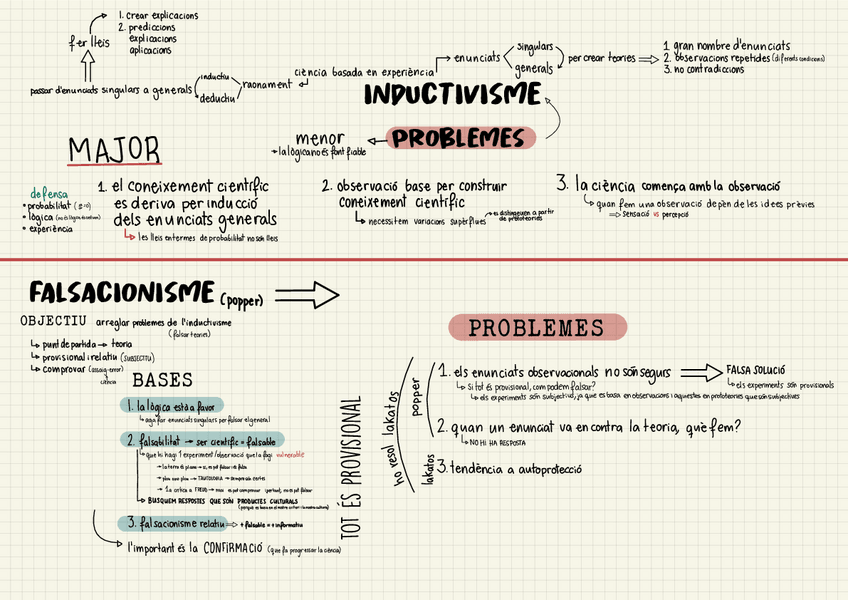 1. crear explicacions
2. prediccions
explicacions
aplicacions
fer lleis
passar d'enunciats singulars a generals
inductiu
deductiu
raonament
ciència basada en experiència
enunciats
singulars
generals
per crear teories
1. gran nombre d'enunciats
2. observacions repetides (diferents condicions)
3. no contradiccions
INDUCTIVISME
PROBLEMES
menor
la lògica no és font fiable
MAJOR
defensa
• probabilitat
• lògica
• experiència
1. el coneixement científic
es deriva per inducció
dels enunciats generals
les lleis en termes de probabilitat no són lleis
2. observació base per construir
coneixement científic
necessitem variacions supèrflues
es distingeixen a partir
de preteories
3. la ciència comença amb la observació
quan fem una observació depèn de les idees prèvies
sensació vs percepció
FALSACIONISME (popper)
OBJECTIU arreglar problemes de l'inductivisme
(falsar teories)
punt de partida → teoria
provisional i relatiu (SUBJECTIU)
comprovar (assaig-error)
ciència
BASES
1. la lògica està a favor
agafar enunciats singulars per falsar el general
2. falsabilitat → ser científic = falsable
que hi hagi 1 experiment/observació que la fagi vulnerable
BUSQUEM RESPOSTES QUE SÓN PRODUCTES CULTURALS
3. falsacionisme relatiu ⇒ + falsable = + informatiu
l'important és la CONFIRMACIÓ (que fa progressar la ciència)
TOT ÉS PROVISIONAL
PROBLEMES
ho resol lakatos
popper
lakatos
1. els enunciats observacionals no són segurs
FALSA SOLUCIÓ
els experiments són provisionals
Si tot és provisional, com podem falsar?
els experiments són subjectius, ja que es basa en observacions i aquestes en prototeories que són subjectives
2. quan un enunciat va en contra la teoria, què fem?
NO HI HA RESPOSTA
3. tendència a autoprotecció